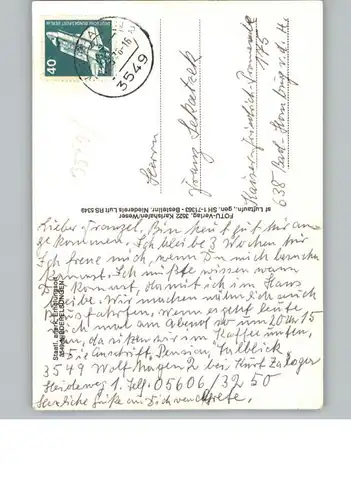 DEUTSCHE BUNDESPOST BERLIN
40
3549
Herrn
Franz
Kaiser-Friedrich-Promenade
175
638 Bad-Homburg v.d.H.
FOTU-Verlag, 3522 Karlshafen/Weser
af Luftaufn., gen., SH 1-1/1383 - Bestellnr. Niederels Luft RS 5349
Staatl. anerk. Erholungsort
3549 NIEDERELSUNGEN
Lieber Franzel, Bin heut gut hir an=
gekommen. Ich bleibe 3 Wochen hir
Ich freue mich, wenn Du mich besuchen
kannst. Ich müßte wissen wann
Du kommst, damit ich im Haus
bleibe. Wir machen nämlich auch
Busfahrten, wenn es geht heute
noch mal am Abend so um 20 Uhr 15
an, da sitzen wir im Kaffee unten,
Anschrift, Pension, Talblick,
3549 Wolfhagen 2 bei Kurt Zaloger
Heideweg 1. Telf. 05606/3250
Herzliche Grüße an Dich von Grete.